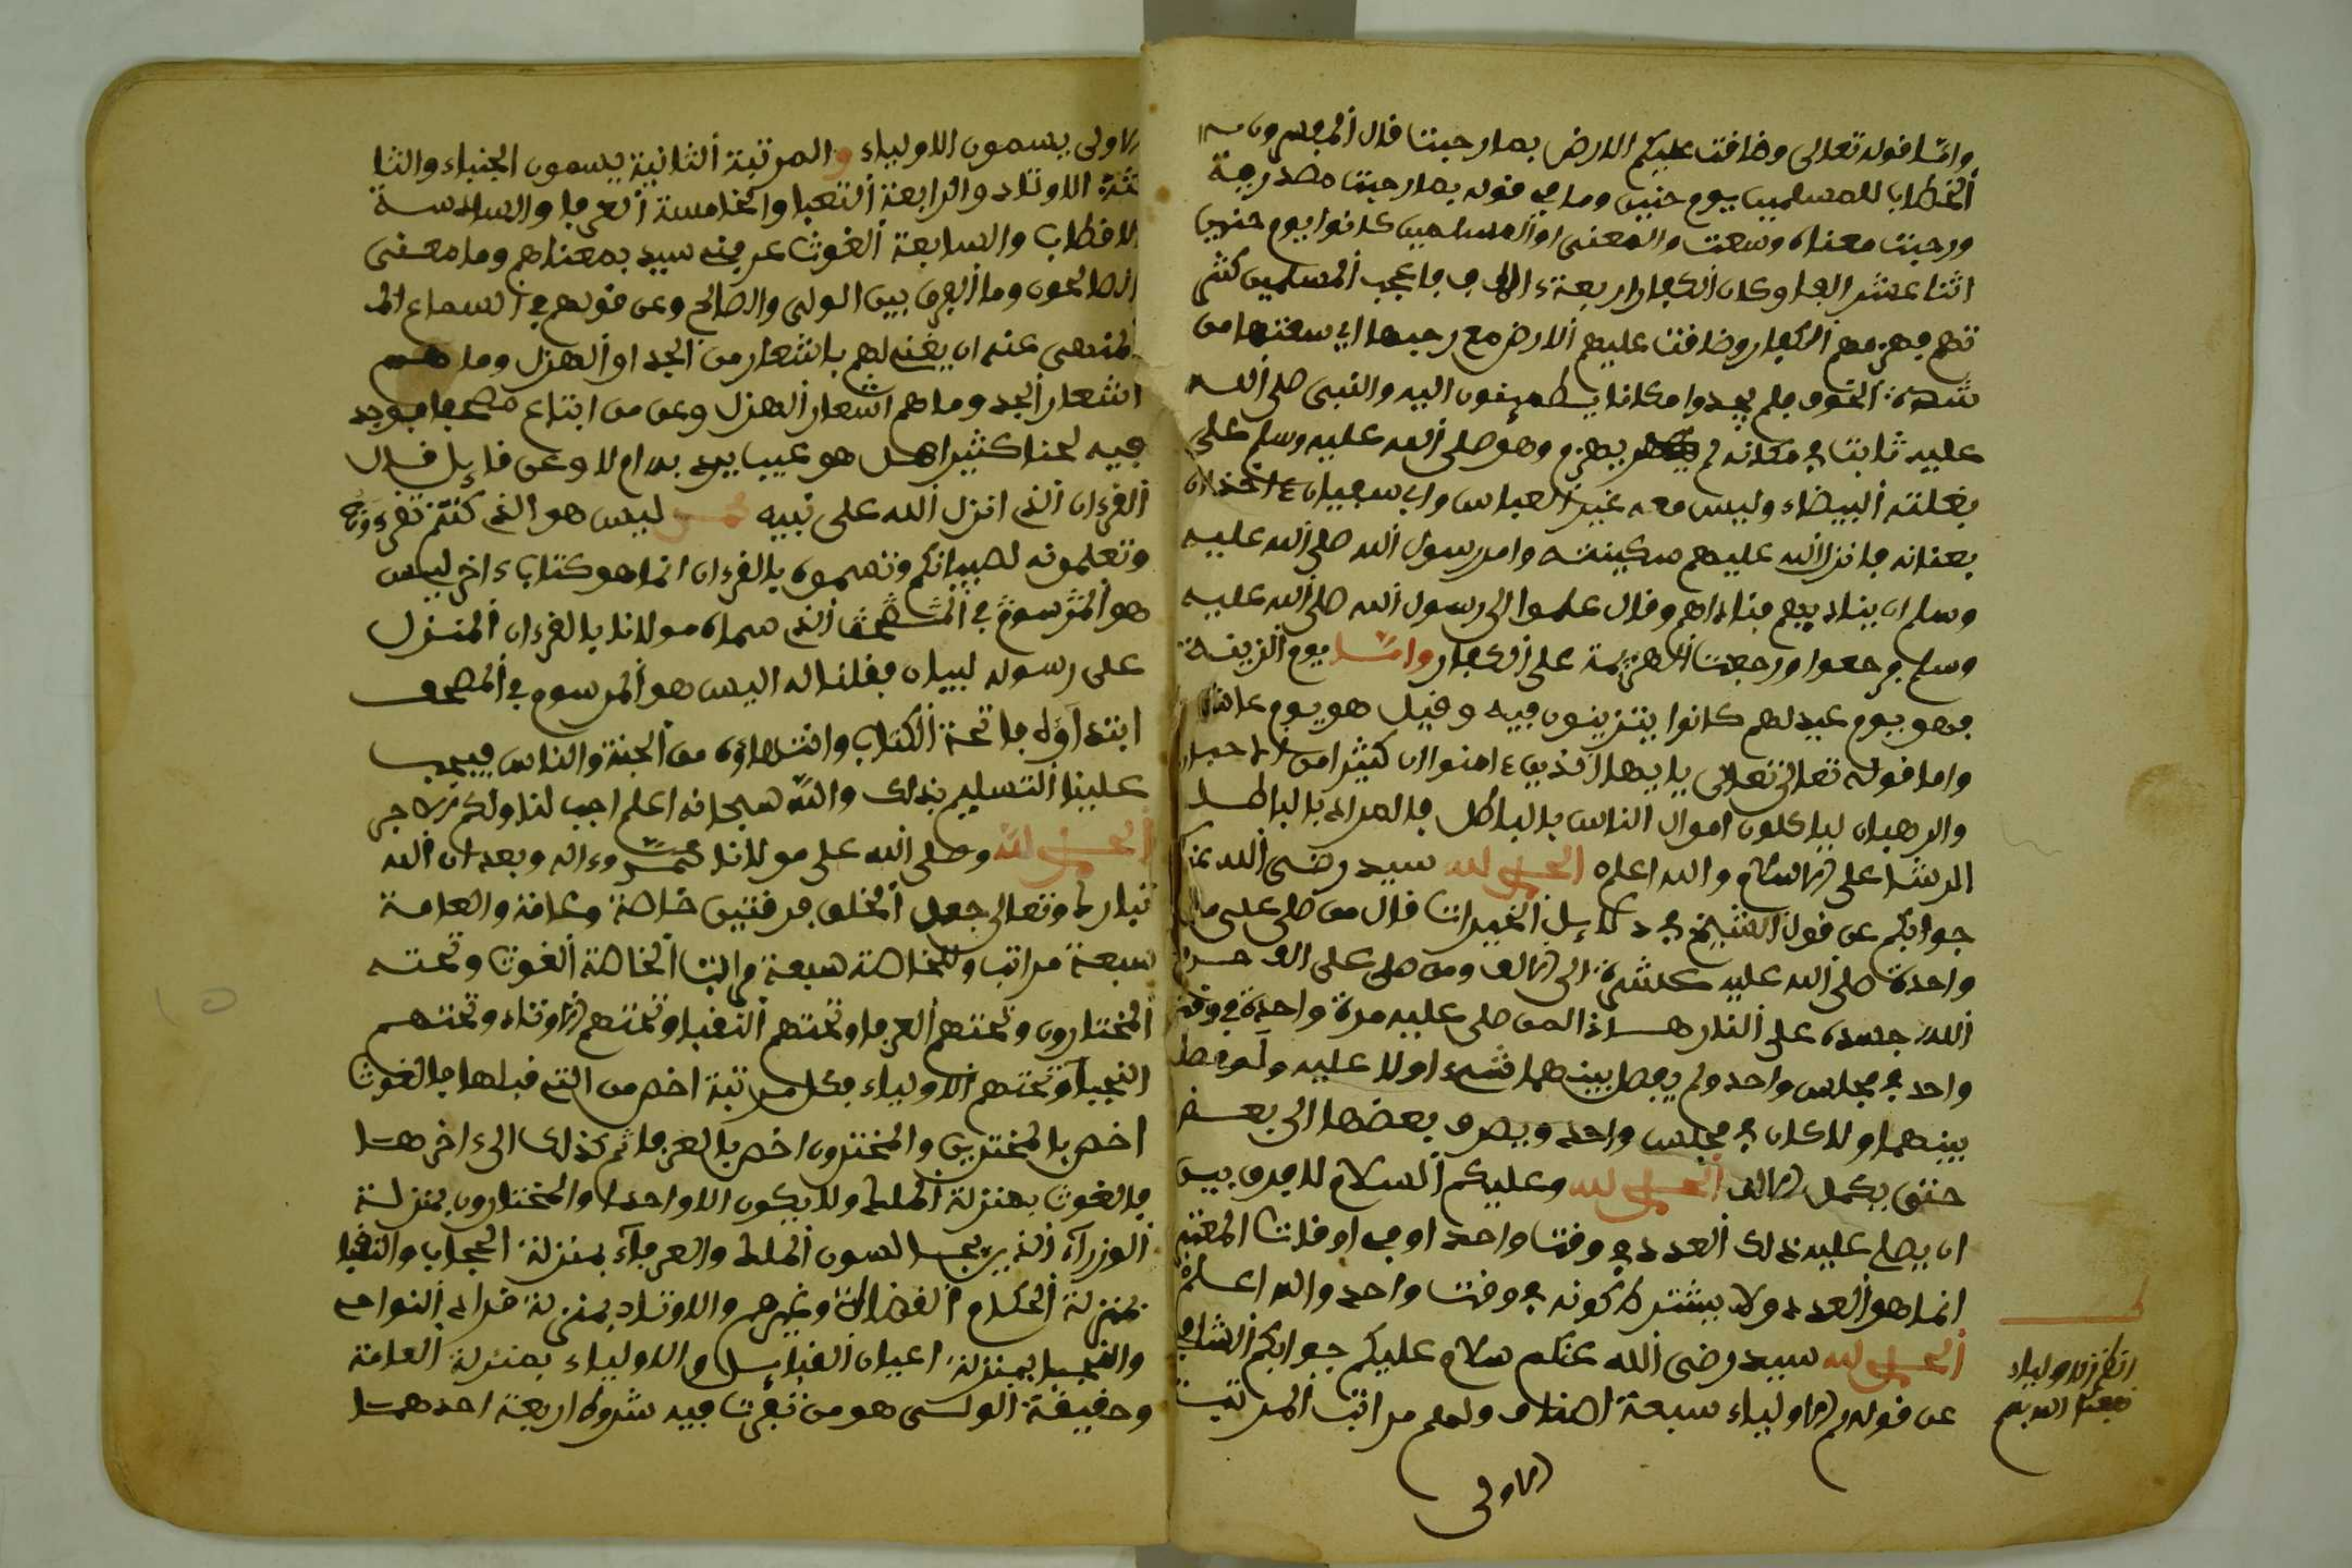 وأما قوله تعالى وضاقت عليكم الارض بما رحبت قال المفسرون
الخطاب للمسلمين يوم حنين وما في قوله بما رحبت مصدرية
ورحبت معناه وسعت والمعنى ان المسلمين كانوا يوم حنين
اثنا عشر الفا وكان الكفار اربعة ءالاف فاعجب المسلمين كثر
تهم فهزمهم الكفار وضاقت عليهم الارض مع رحبها اي سعتها من
شدة الخوف فلم يجدوا مكانا يطمينون اليه والنبي صلى الله
عليه ثابت في مكانه لم يهزم وهو صلى الله عليه وسلم على
بغلته البيضاء وليس معه غير العباس وابي سفيان ءاخذان
بعنانه فانزل الله عليهم سكينته وامر رسول الله صلى الله عليه
وسلم ان يناد يهم فناداهم وقال هلموا الى رسول الله صلى الله عليه
وسلم فرجعوا ورجعت الهزيمة على الكفار واما يوم الزينة
فهو يوم عيد لهم كانوا يتزينون فيه وقيل هو يوم عاشرا
واما قوله تعالى تعالى يايها الذين ءامنوا ان كثيرا من الاحبار
والرهبان لياكلون اموال الناس بالباطل فالمراد بالباطل
الرشا على الاسلام والله اعلم الحمد لله سيد رضي الله عنكم
جوابكم عن قول الشيخ في دلايل الخيرات قال من صلى علي مرة
واحدة صلى الله عليه عشرة الى الالف ومن صلى علي الف حرم
الله جسده على النار هل هذا لمن صلى عليه مرة واحدة في وقت
واحد في مجلس واحد ولم يفصل بينهما شيء او لا عليه ولو فصل
بينهما ولا كان في مجلس واحد ويصرف بعضها الى بعض
حتى يكمل الالف الحمد لله وعليكم السلام لا فرق بين
ان يصلي عليه ذلك العدد في وقت واحد او في اوقات المعتبر
انما هو العدد ولا يشترط كونه في وقت واحد والله اعلم
الحمد لله سيد رضي الله عنكم سلام عليكم جوابكم الشافي
عن قولهم الاولياء سبعة اصناف ولهم مراتب المرتبة
الاولى
انظر الاولياء
نفعنا الله بهم
الاولى يسمون الاولياء والمرتبة الثانية يسمون النجباء والثا
لثة الاوتاد والرابعة النقبا والخامسة العرفا والسادسة
الاقطاب والسابعة الغوث عرفنه سيد بمعناهم وما معنى
الصالحون وما الفرق بين الولي والصالح وعن قولهم في السماع الم
المنهى عنه ان يغنى لهم باشعار من الجد او الهزل وما هم
اشعار الجد وما هم اشعار الهزل وعن من ابتاع مصحفا فوجد
فيه لحنا كثيرا هل هو عيب يرد به ام لا وعن قايل قال
القرءان الذي انزل الله على نبيه محمد ليس هو الذي كنتم تقرءونه
وتعلمونه لصبيانكم وتسموه بالقرءان انما هو كتاب ءاخر ليس
هو المرسوم في المصحف الذي سماه مولانا بالقرءان المنزل
على رسوله لبيان فقلنا له اليس هو المرسوم في المصحف
ابتداؤه فاتحة الكتاب وانتهاؤه من الجنة والناس فيجب
علينا التسليم بذلك والله سبحانه اعلم اجب لنا ولكم الاجر
الحمد لله وصلى الله على مولانا محمد وءاله وبعد ان الله
تبارك وتعالى جعل الخلق فرقتين خاصة وعامة والعامة
سبعة مراتب وللخاصة سبعة مراتب الخاصة الغوث وتحته
المختارون وتحتهم العرفا وتحتهم النقبا وتحتهم الاوتاد وتحتهم
النجبا وتحتهم الاولياء فكل مرتبة اخص من التي قبلها فالغوث
اخص بالمختارين والمختارون اخص بالعرفا ثم كذلك الى ءاخرها
فالغوث بمنزلة الملك ولا يكون الا واحدا والمختارون بمنزلة
الوزرآء الذين يجالسون الملك والعرفاء بمنزلة الحجاب والنقبا
بمنزلة الحكام القضاة وغيرهم والاوتاد بمنزلة قواد النواحي
والنجبا بمنزلة اعيان القبايل والاولياء بمنزلة العامة
وحقيقة الولي هو من توفرت فيه شروط اربعة احدها